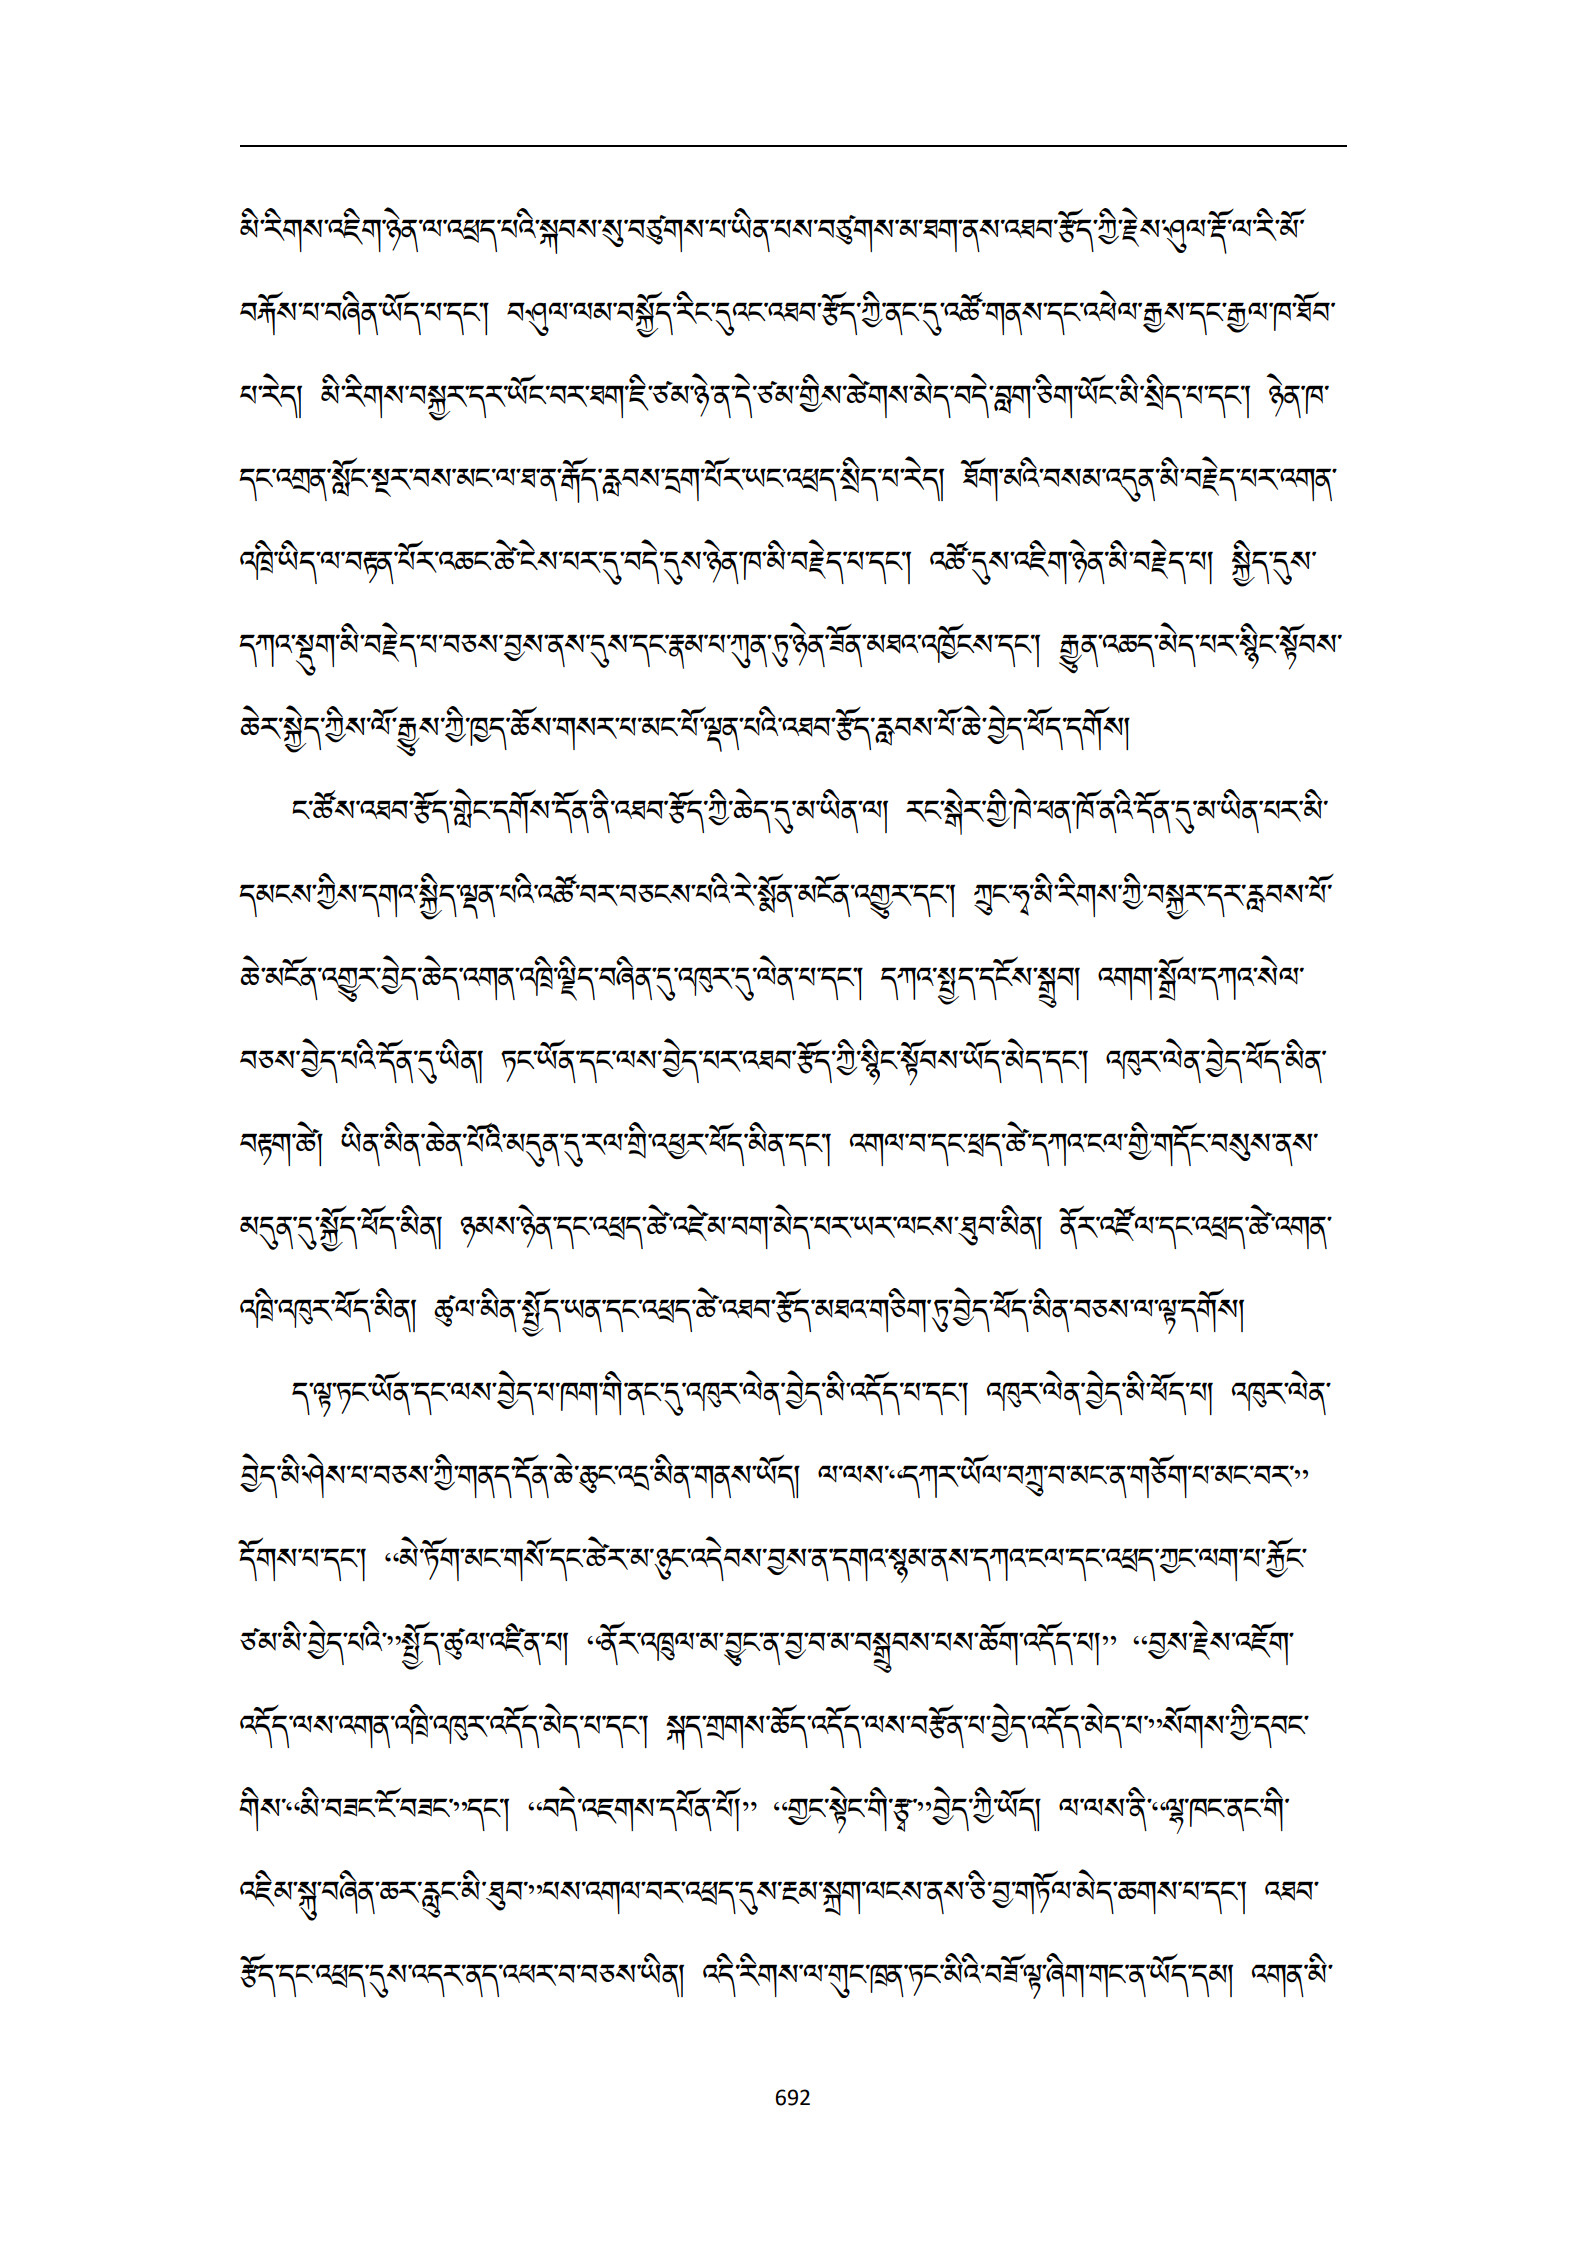 མི་རིགས་འཇིག་ཉེན་ལ་འཕྲད་པའི་སྐབས་སུ་བཙུགས་པ་ཡིན་པས་བཙུགས་མ་ཐག་ནས་འཐབ་རྩོད་ཀྱི་རྗེས་ཤུལ་རྡོ་ལ་རི་མོ་
བརྐོས་པ་བཞིན་ཡོད་པ་དང༌། བཤུལ་ལམ་བསྐྱོད་རིང་དུའང་འཐབ་རྩོད་ཀྱི་ནང་དུ་འཚོ་གནས་དང་འཕེལ་རྒྱས་དང་རྒྱལ་ཁ་ཐོབ་
པ་རེད། མི་རིགས་བསྐྱར་དར་ཡོང་བར་ཐག་ཇི་ཙམ་ཉེ་ན་དེ་ཙམ་གྱིས་ཚེགས་མེད་བདེ་བླག་ཅིག་ཡོང་མི་སྲིད་པ་དང༌། ཉེན་ཁ་
དང་འགྲན་སློང་སྔར་བས་མང་ལ་ཐ་ན་རྒོད་རླབས་དྲག་པོར་ཡང་འཕྲད་སྲིད་པ་རེད། ཐོག་མའི་བསམ་འདུན་མི་བརྗེད་པར་འགན་
འཁྲི་ཡིད་ལ་བརྟན་པོར་འཆང་ཚེ་ངེས་པར་དུ་བདེ་དུས་ཉེན་ཁ་མི་བརྗེད་པ་དང༌། འཚོ་དུས་འཇིག་ཉེན་མི་བརྗེད་པ། སྐྱིད་དུས་
དཀའ་སྡུག་མི་བརྗེད་པ་བཅས་བྱས་ནས་དུས་དང་རྣམ་པ་ཀུན་ཏུ་ཉེན་ཟོན་མཐའ་འཁྱོངས་དང༌། རྒྱུན་འཆད་མེད་པར་སྙིང་སྟོབས་
ཆེར་སྐྱེད་ཀྱིས་ལོ་རྒྱུས་ཀྱི་ཁྱད་ཆོས་གསར་པ་མང་པོ་ལྡན་པའི་འཐབ་རྩོད་རླབས་པོ་ཆེ་བྱེད་ཕོད་དགོས།
ང་ཚོས་འཐབ་རྩོད་གླེང་དགོས་དོན་ནི་འཐབ་རྩོད་ཀྱི་ཆེད་དུ་མ་ཡིན་ལ། རང་སྒེར་གྱི་ཁེ་ཕན་ཁོ་ནའི་དོན་དུ་མ་ཡིན་པར་མི་
དམངས་ཀྱིས་དགའ་སྐྱིད་ལྡན་པའི་འཚོ་བར་བཅངས་པའི་རེ་སྨོན་མངོན་འགྱུར་དང༌། ཀྲུང་ཧྭ་མི་རིགས་ཀྱི་བསྐྱར་དར་རླབས་པོ་
ཆེ་མངོན་འགྱུར་བྱེད་ཆེད་འགན་འཁྲི་ལྗིད་བཞིན་དུ་འཁུར་དུ་ལེན་པ་དང༌། དཀའ་སྤྱད་དངོས་སྒྲུབ། འགག་སྒྲོལ་དཀའ་སེལ་
བཅས་བྱེད་པའི་དོན་དུ་ཡིན། ཏང་ཡོན་དང་ལས་བྱེད་པར་འཐབ་རྩོད་ཀྱི་སྙིང་སྟོབས་ཡོད་མེད་དང༌། འཁུར་ལེན་བྱེད་ཕོད་མིན་
བརྟག་ཚེ། ཡིན་མིན་ཆེན་པོའི་མདུན་དུ་རལ་གྲི་འཕྱར་ཕོད་མིན་དང༌། འགལ་བ་དང་ཕྲད་ཚེ་དཀའ་ངལ་གྱི་གདོང་བསུས་ནས་
མདུན་དུ་སྐྱོད་ཕོད་མིན། ཉམས་ཉེན་དང་འཕྲད་ཚེ་འཛེམ་བག་མེད་པར་ཡར་ལངས་ཐུབ་མིན། ནོར་འཛོལ་དང་འཕྲད་ཚེ་འགན་
འཁྲི་འཁུར་ཕོད་མིན། ཚུལ་མིན་སྤྱོད་ཡན་དང་འཕྲད་ཚེ་འཐབ་རྩོད་མཐའ་གཅིག་ཏུ་བྱེད་ཕོད་མིན་བཅས་ལ་ལྟ་དགོས།
ད་ལྟ་ཏང་ཡོན་དང་ལས་བྱེད་པ་ཁག་གི་ནང་དུ་འཁུར་ལེན་བྱེད་མི་འདོད་པ་དང༌། འཁུར་ལེན་བྱེད་མི་ཕོད་པ། འཁུར་ལེན་
བྱེད་མི་ཤེས་པ་བཅས་ཀྱི་གནད་དོན་ཆེ་ཆུང་འདྲ་མིན་གནས་ཡོད། ལ་ལས་“དཀར་ཡོལ་བཀྲུ་བ་མང་ན་གཅོག་པ་མང་བར་”
དོགས་པ་དང༌། “མེ་ཏོག་མང་གསོ་དང་ཚེར་མ་ཉུང་འདེབས་བྱས་ན་དགའ་སྙམ་ནས་དཀའ་ངལ་དང་འཕྲད་ཀྱང་ལག་པ་རྐྱོང་
ཙམ་མི་བྱེད་པའི་”སྤྱོད་ཚུལ་འཛིན་པ། “ནོར་འཁྲུལ་མ་བྱུང་ན་བྱ་བ་མ་བསྒྲུབས་པས་ཆོག་འདོད་པ།” “བྱས་རྗེས་འཇོག་
འདོད་ལས་འགན་འཁྲི་འཁུར་འདོད་མེད་པ་དང༌། སྐད་གྲགས་ཆོད་འདོད་ལས་བརྩོན་པ་བྱེད་འདོད་མེད་པ་”སོགས་ཀྱི་དབང་
གིས་“མི་བཟང་ངོ་བཟང་”དང༌། “བདེ་འཇགས་དཔོན་པོ།” “གྱང་སྟེང་གི་རྩྭ་”བྱེད་ཀྱི་ཡོད། ལ་ལས་ནི་“ལྷ་ཁང་ནང་གི་
འཇིམ་སྐུ་བཞིན་ཆར་རླུང་མི་ཐུབ་”པས་འགལ་བར་འཕྲད་དུས་ངམ་སྐྲག་ལངས་ནས་ཅི་བྱ་གཏོལ་མེད་ཆགས་པ་དང༌། འཐབ་
རྩོད་དང་འཕྲད་དུས་འདར་ནད་འཕར་བ་བཅས་ཡིན། འདི་རིགས་ལ་གུང་ཁྲན་ཏང་མིའི་བཟོ་ལྟ་ཞིག་གང་ན་ཡོད་དམ། འགན་མི་
692